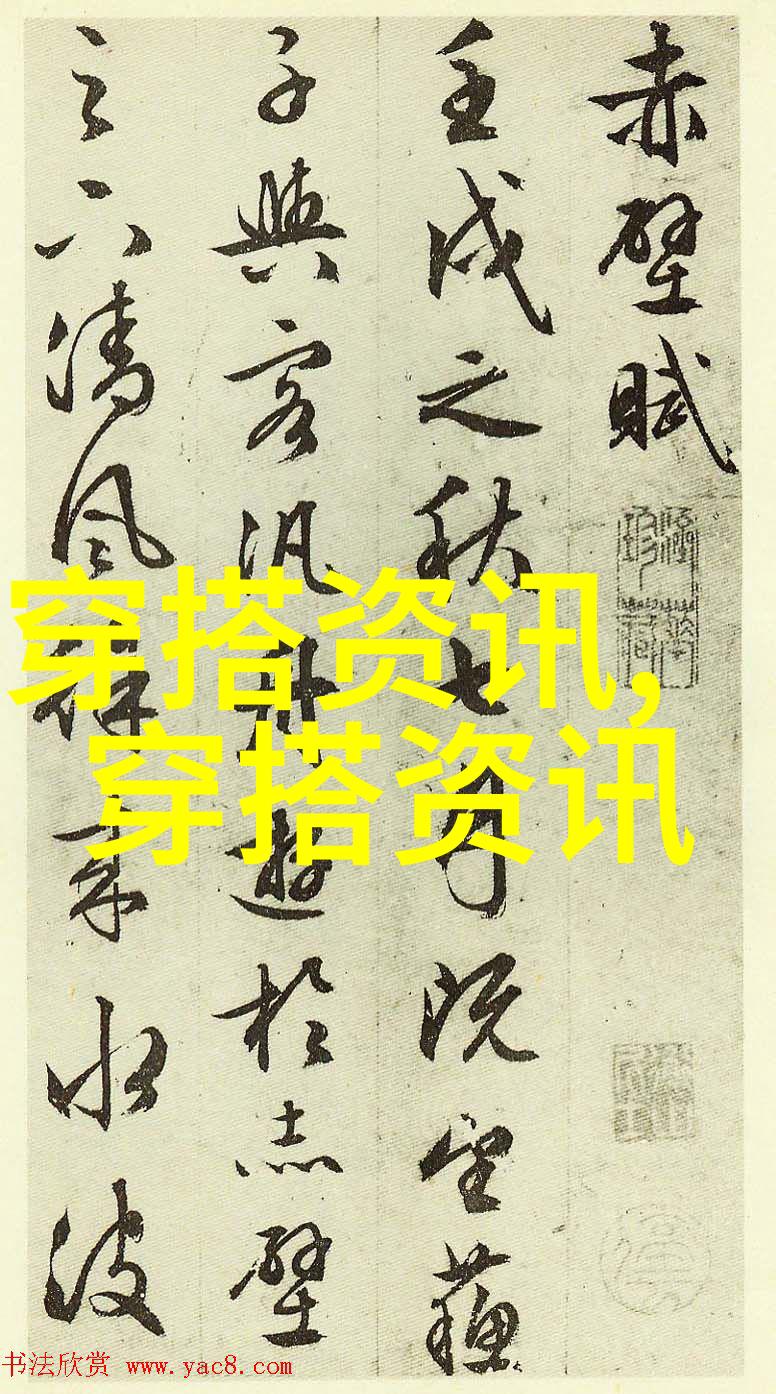 赤壁賦
壬戌之秋七月既望蘇
子與客汎舟遊於赤壁
之下清風徐來水波
穿搭资讯,
穿搭资讯
书法欣赏 www.yac8.com